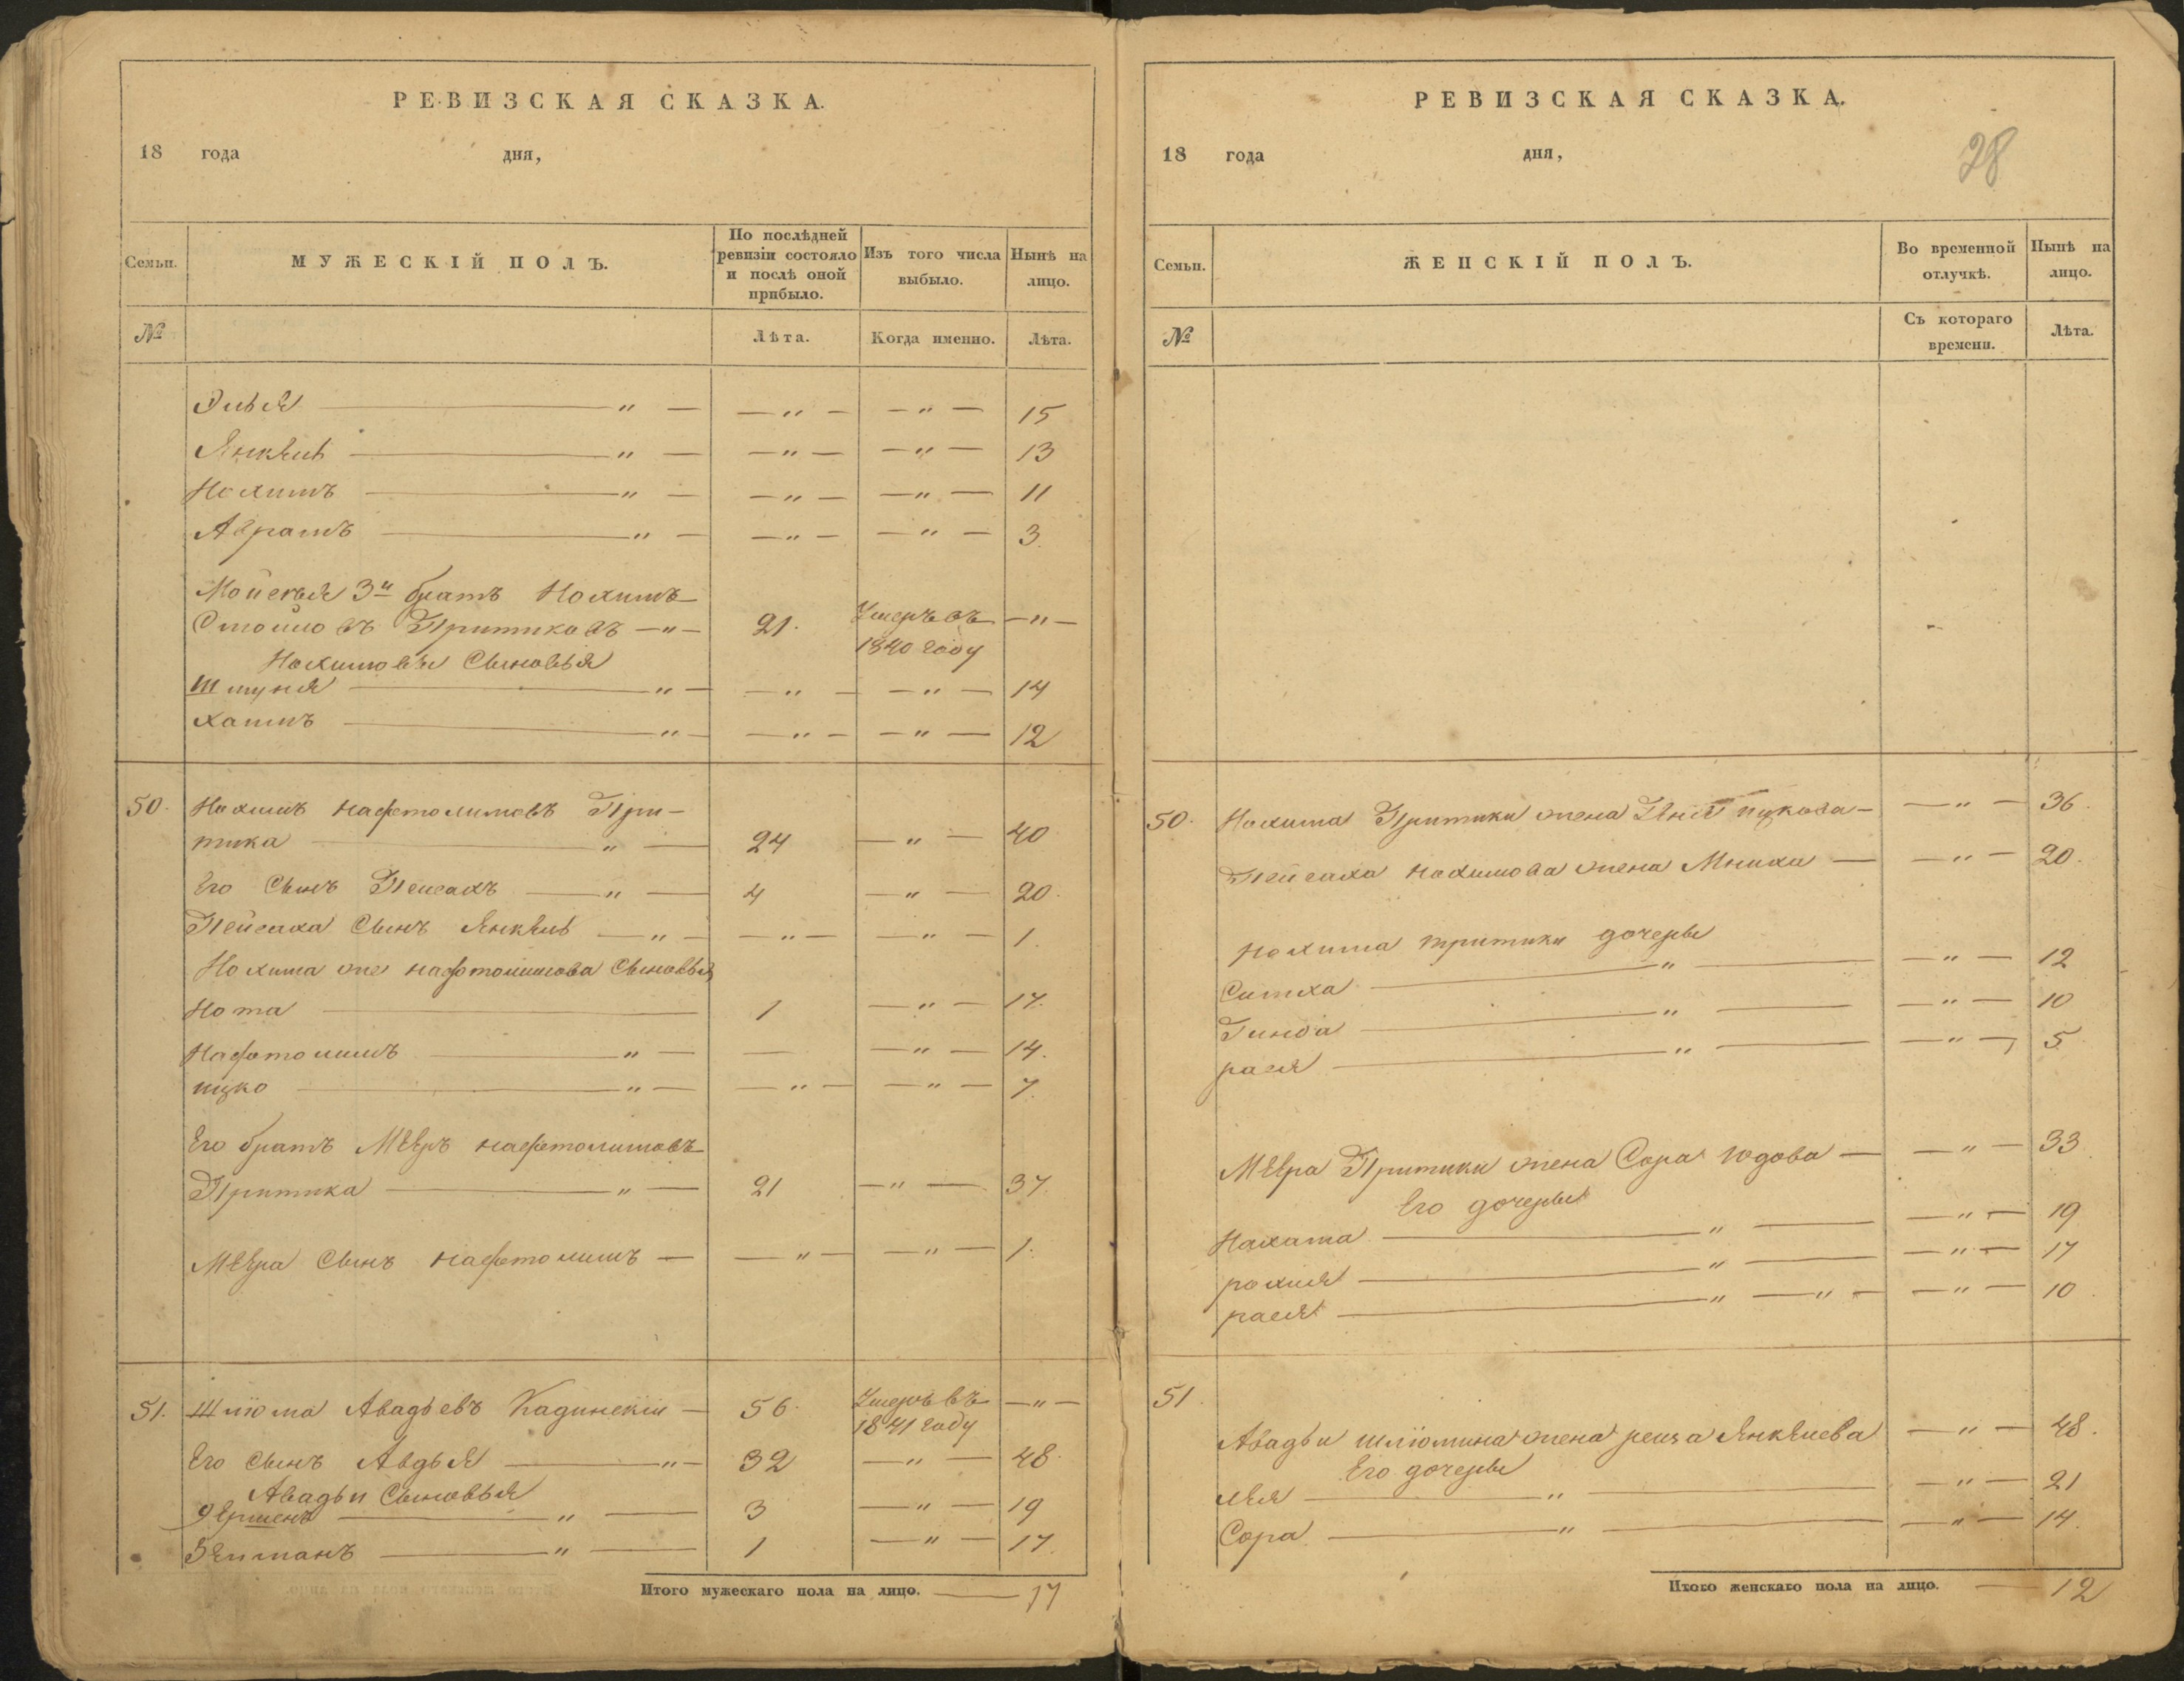 РЕВИЗСКАЯ СКАЗКА.
18 года дня,
Семьи. МУЖЕСКІЙ ПОЛЪ. По послѣдней ревизіи состояло и послѣ оной прибыло. Изъ того числа выбыло. Нынѣ на лицо.
№ Лѣта. Когда именно. Лѣта.
— " — — " — — " — 15
Янкѣль — " — — " — — " — 13
Нохимъ — " — — " — — " — 11
Абрамъ — " — — " — — " — 3.
3й братъ Нохимъ
Притиковъ — " — 21. Умеръ въ 1840 году — " —
Нохимовы Сыновья
Шмуня — " — — " — — " — 14
Хаимъ — " — — " — — " — 12
50. Нохимъ Нафтолимовъ При-
тика — " — 24 — " — 40
Его Сынъ Пейсахъ — " — 4 — " — 20.
Пейсаха Сынъ Янкѣль — " — — " — — " — 1.
Нохима же Нафтолимова Сыновья
Нота — 1 — " — 17.
Нафтолимъ — " — — — " — 14.
ицко — " — — " — — " — 7.
Его братъ Мѣеръ Нафтолимовъ
Притика — " — 21 — " — 37.
Мѣера Сынъ Нафтолимъ — — " — — " — 1.
51. Шлюма Авадьевъ Кадинскій — 56. Умеръ въ 1841 году — " —
Его Сынъ Авдья — " — 32 — " — 48.
Авадьи Сыновья
— " — 3 — " — 19
Зелманъ — " — 1 — " — 17.
Итого мужескаго пола на лицо. — 17
РЕВИЗСКАЯ СКАЗКА.
28
18 года дня,
Семьи. ЖЕНСКІЙ ПОЛЪ. Во временной отлучкѣ. Нынѣ на лицо.
№ Съ котораго времени. Лѣта.
50. Нохима Притики жена ицкова — — " — 36.
Пейсаха Нохимова жена Мниха — — " — 20.
Нохима притики дочери
Симха — " — — " — 12
Гинда — " — — " — 10
рася — " — — " — 5
Мѣера Притики жена Сора юдова — — " — 33.
Его дочери
Нахама — " — — " — 19
рохля — " — — " — 17
рася — " — " — — " — 10.
51.
Авадьи шлюмина жена Янкѣлева — " — 48.
Его дочери
лѣя — " — — " — 21
Сора — " — — " — 14.
Итого женскаго пола на лицо. — 12